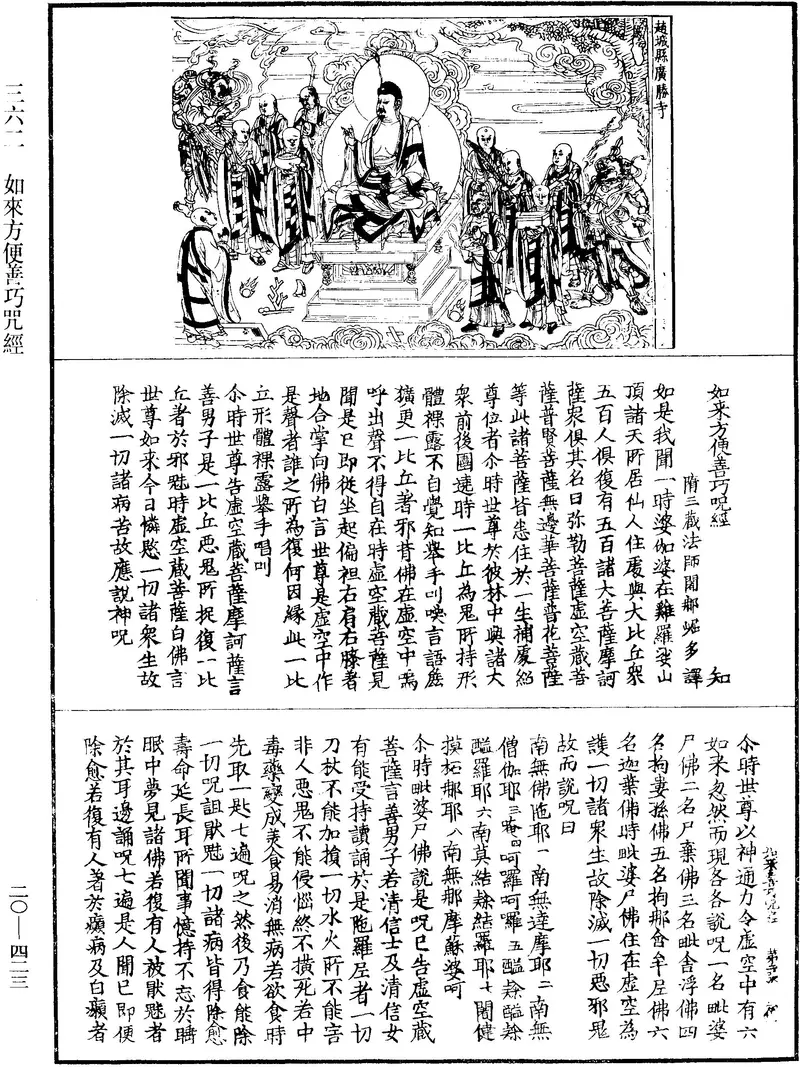 三六二　如來方便善巧咒經
二〇—四二三
趙城縣廣勝寺
如來方便善巧呪經
隋三藏法師闍那崛多譯　知
如是我聞一時婆伽婆在雞羅娑山
頂諸天所居仙人住處與大比丘眾
五百人俱復有五百諸大菩薩摩訶
薩眾俱其名曰弥勒菩薩虛空藏菩
薩普賢菩薩無邊華菩薩普花菩薩
等此諸菩薩皆悉住於一生補處紹
尊位者尒時世尊於彼林中與諸大
眾前後圍遶時一比丘為鬼所持形
體裸露不自覺知舉手叫喚言語麁
獷更一比丘著邪昔佛在虛空中嗚
呼出聲不得自在時虛空藏菩薩見
聞是已即從坐起偏袒右肩右膝著
地合掌向佛白言世尊是虛空中作
是聲者誰之所為復何因緣此一比
立形體裸露舉手唱叫
尒時世尊告虛空藏菩薩摩訶薩言
善男子是一比丘惡鬼所捉復一比
丘者於邪魅時虛空藏菩薩白佛言
世尊如來今日憐愍一切諸眾生故
除滅一切諸病苦故應說神呪
尒時世尊以神通力令虛空中有六
如來忽然而現各各說呪一名毗婆
尸佛二名尸棄佛三名毗舍浮佛四
名拘婁孫佛五名拘那含牟尼佛六
名迦葉佛時毗婆尸佛住在虛空為
護一切諸眾生故除滅一切惡邪鬼
故而說呪曰
南無佛陁耶一南無達摩耶二南無
僧伽耶三唵四呵羅呵羅五醯𨽻醯𨽻
醯羅耶六南莫結𨽻結羅耶七闍健
摸柘那耶八南無那摩蘇婆呵
尒時毗婆尸佛說是呪已告虛空藏
菩薩言善男子若清信士及清信女
有能受持讀誦於是陁羅尼者一切
刀杖不能加損一切水火所不能害
非人惡鬼不能侵惱終不橫死若中
毒藥變成美食易消無病若欲食時
先取一匙七遍呪之然後乃食能除
一切呪詛猒魅一切諸病皆得除愈
壽命延長耳所聞事憶持不忘於睡
眠中夢見諸佛若復有人被猒魅者
於其耳邊誦呪七遍是人聞已即便
除愈若復有人著於癩病及白癩者